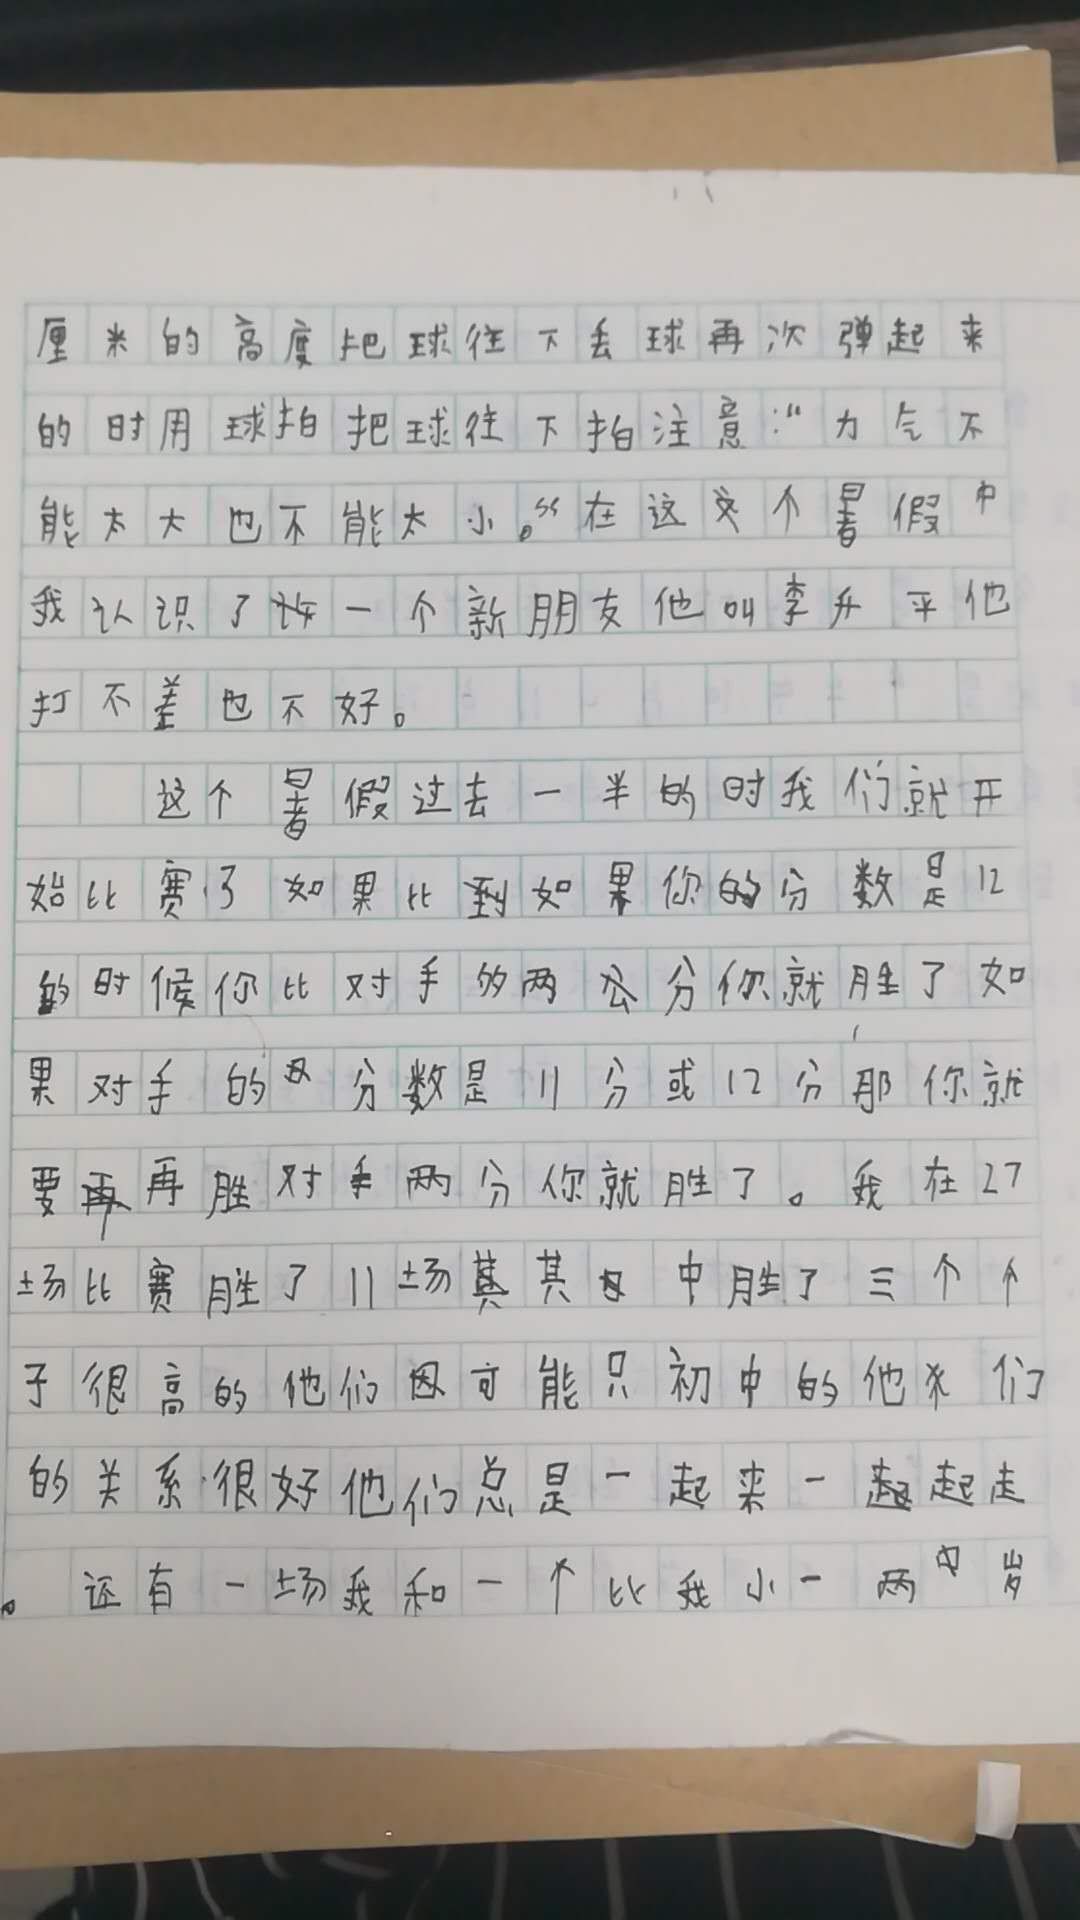 厘米的高度把球往下丢球再次弹起来
的时用球拍把球往下拍注意：“力气不
能太大也不能太小。“在这个暑假中
我认识了一个新朋友他叫李升平他
打不差也不好。
这个暑假过去一半的时我们就开
始比赛了如果比到如果你的分数是12
的时候你比对手的两分你就胜了如
果对手的分数是11分或12分那你就
要再胜对手两分你就胜了。我在27
场比赛胜了11场其中胜了三个个
子很高的他们可能只初中的他们
的关系很好他们总是一起来一起走
。还有一场我和一个比我小一两岁